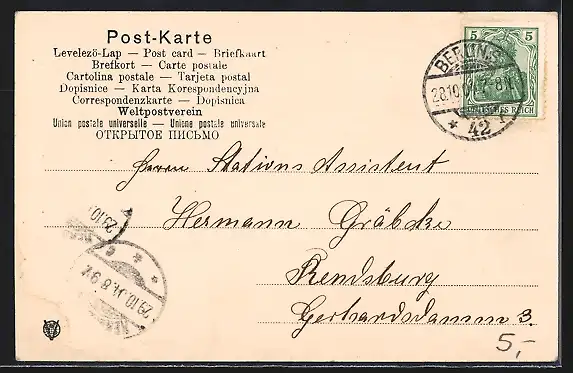 Post-Karte
Levelezö-Lap — Post card — Briefkaart
Brefkort — Carte postale
Cartolina postale — Tarjeta postal
Dopisnice — Karta Korespondencyjna
Correspondenzkarte — Dopisnica
Weltpostverein
Union postale universelle — Unione postale universale
ОТКРЫТОЕ ПИСЬМО
5 5
BERLIN
28.10
7-8N
42
REICH
Herrn Stations Assistent
Hermann Gräbcke
Rendsburg
Gerhardsdamm 3.
29.10
29.10.
5,-